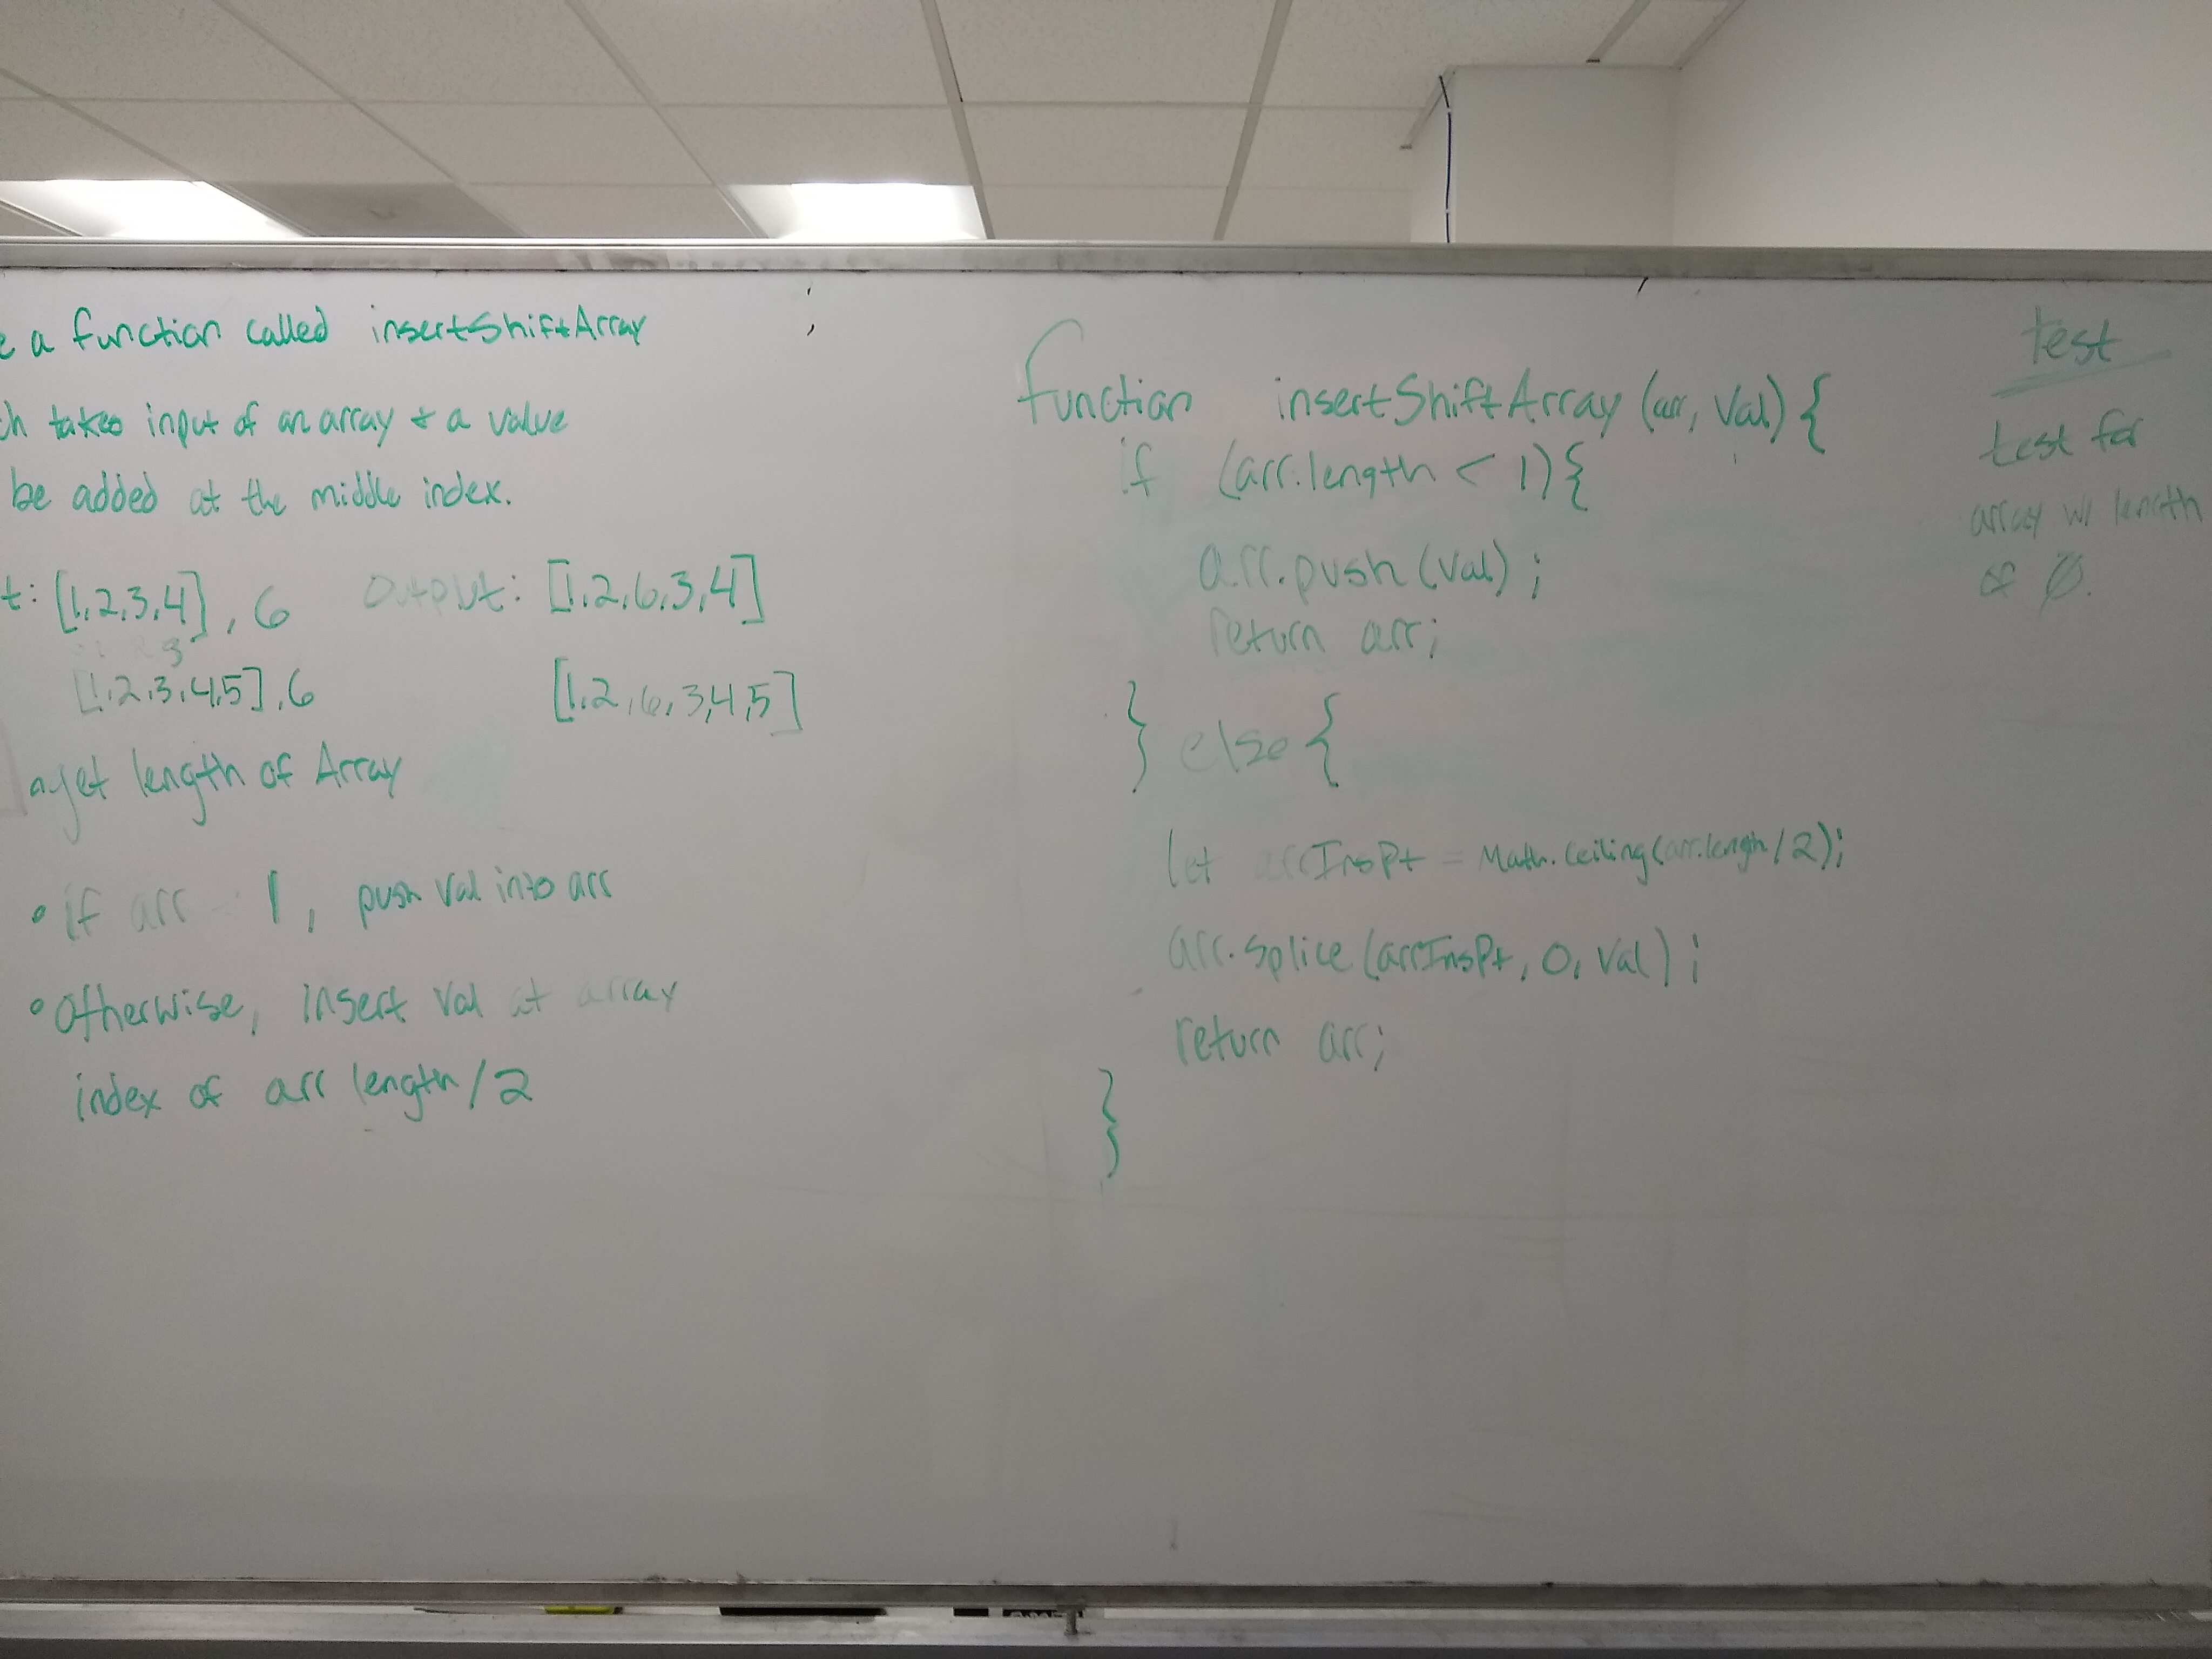 a function called insertShiftArray
takes input of an array & a value
be added at the middle index.
t: [1,2,3,4], 6 Output: [1,2,6,3,4]
3
[1,2,3,4,5], 6 [1,2,6,3,4,5]
get length of Array
• if arr 1, push val into arr
• Otherwise, insert val at array
index of arr length/2
function insertShiftArray (arr, val) {
if (arr.length < 1) {
arr.push(val);
return arr;
} else {
let arrInsPt = Math.Ceiling(arr.length/2);
arr.splice(arrInsPt, 0, val);
return arr;
}
test
test for
array w/ length
of 0.